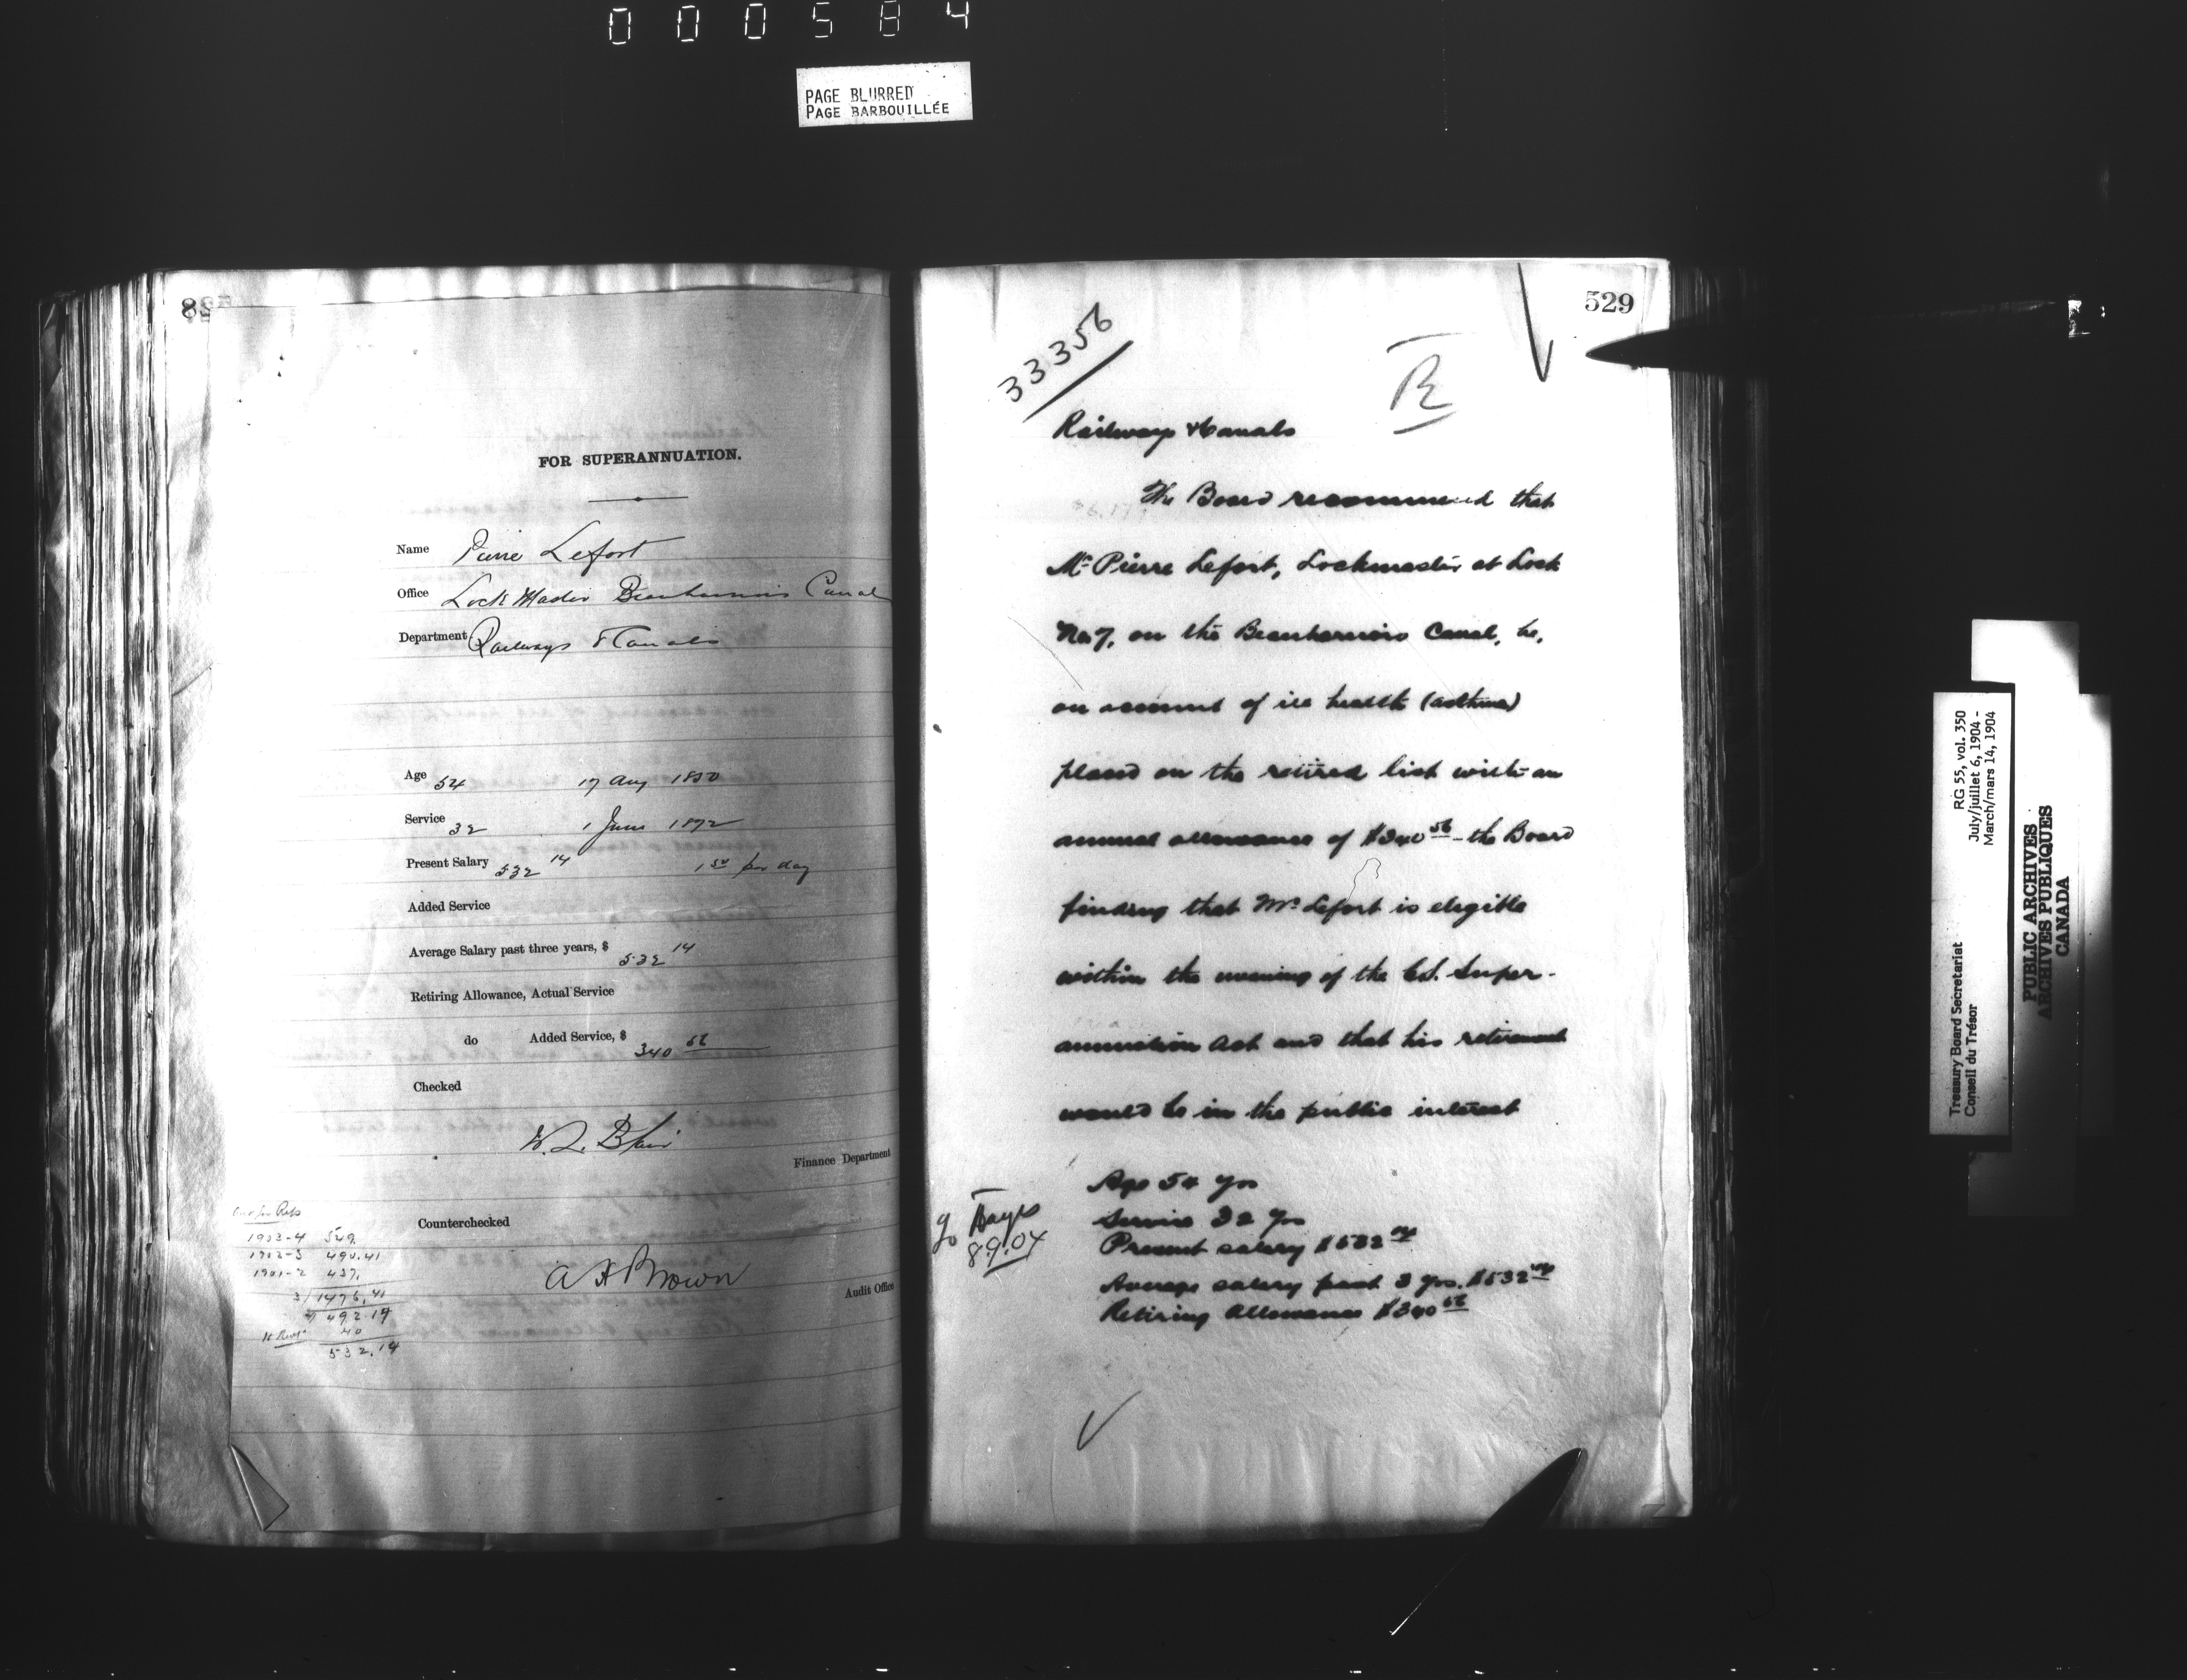 000584
PAGE BLURRED
PAGE BARBOUILLÉE
FOR SUPERANNUATION.
Name Pierre Lefort
Office Lock Master Beauharnois Canal
Department Railways & Canals
Age 54 17 Aug 1850
Service 32 1 June 1872
Present Salary 532 14 1 50 per day
Added Service
Average Salary past three years, $ 532 14
Retiring Allowance, Actual Service
do Added Service, $ 340 56
Checked
W. L. Blair
Finance Department
Counterchecked
A H Brown
Audit Office
1903-4 549.
1902-3 490.41
1901-2 437.
3/1476.41
492.14
40
532.14
529
33356
R
Railways & Canals
The Board recommend that
Mr Pierre Lefort, Lockmaster at Lock
No 7, on the Beauharnois Canal, be,
on account of ill health (asthma)
placed on the retired list with an
annual allowance of $340 56 - the Board
finding that Mr Lefort is eligible
within the meaning of the C.S. Super-
annuation Act and that his retirement
would be in the public interest
Age 54 yrs
Service 32 yrs
Present salary $532 14
Average salary past 3 yrs. $532 14
Retiring allowance $340 56
8.9.04
RG 55, vol. 350
July/juillet 6, 1904 -
March/mars 14, 1904
Treasury Board Secretariat
Conseil du Trésor
PUBLIC ARCHIVES
ARCHIVES PUBLIQUES
CANADA